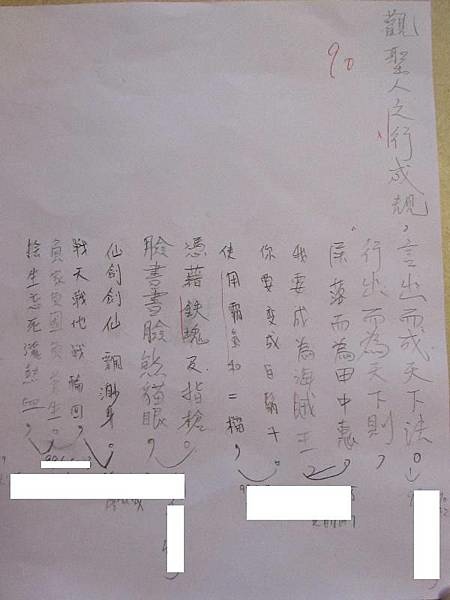 90
觀聖人之行成規,言出而成天下法。
行出而為天下則,
落而為田中惠
我要成為海賊王
你要变成白鬍
使用霸氣和二檔,
憑藉鉄塊及指槍。
臉書書臉熊貓眼,
仙劍劍仙飄渺身。
戰天戰地戰輪回,
負家負國負蒼生。
捨生忘死灑熱血。